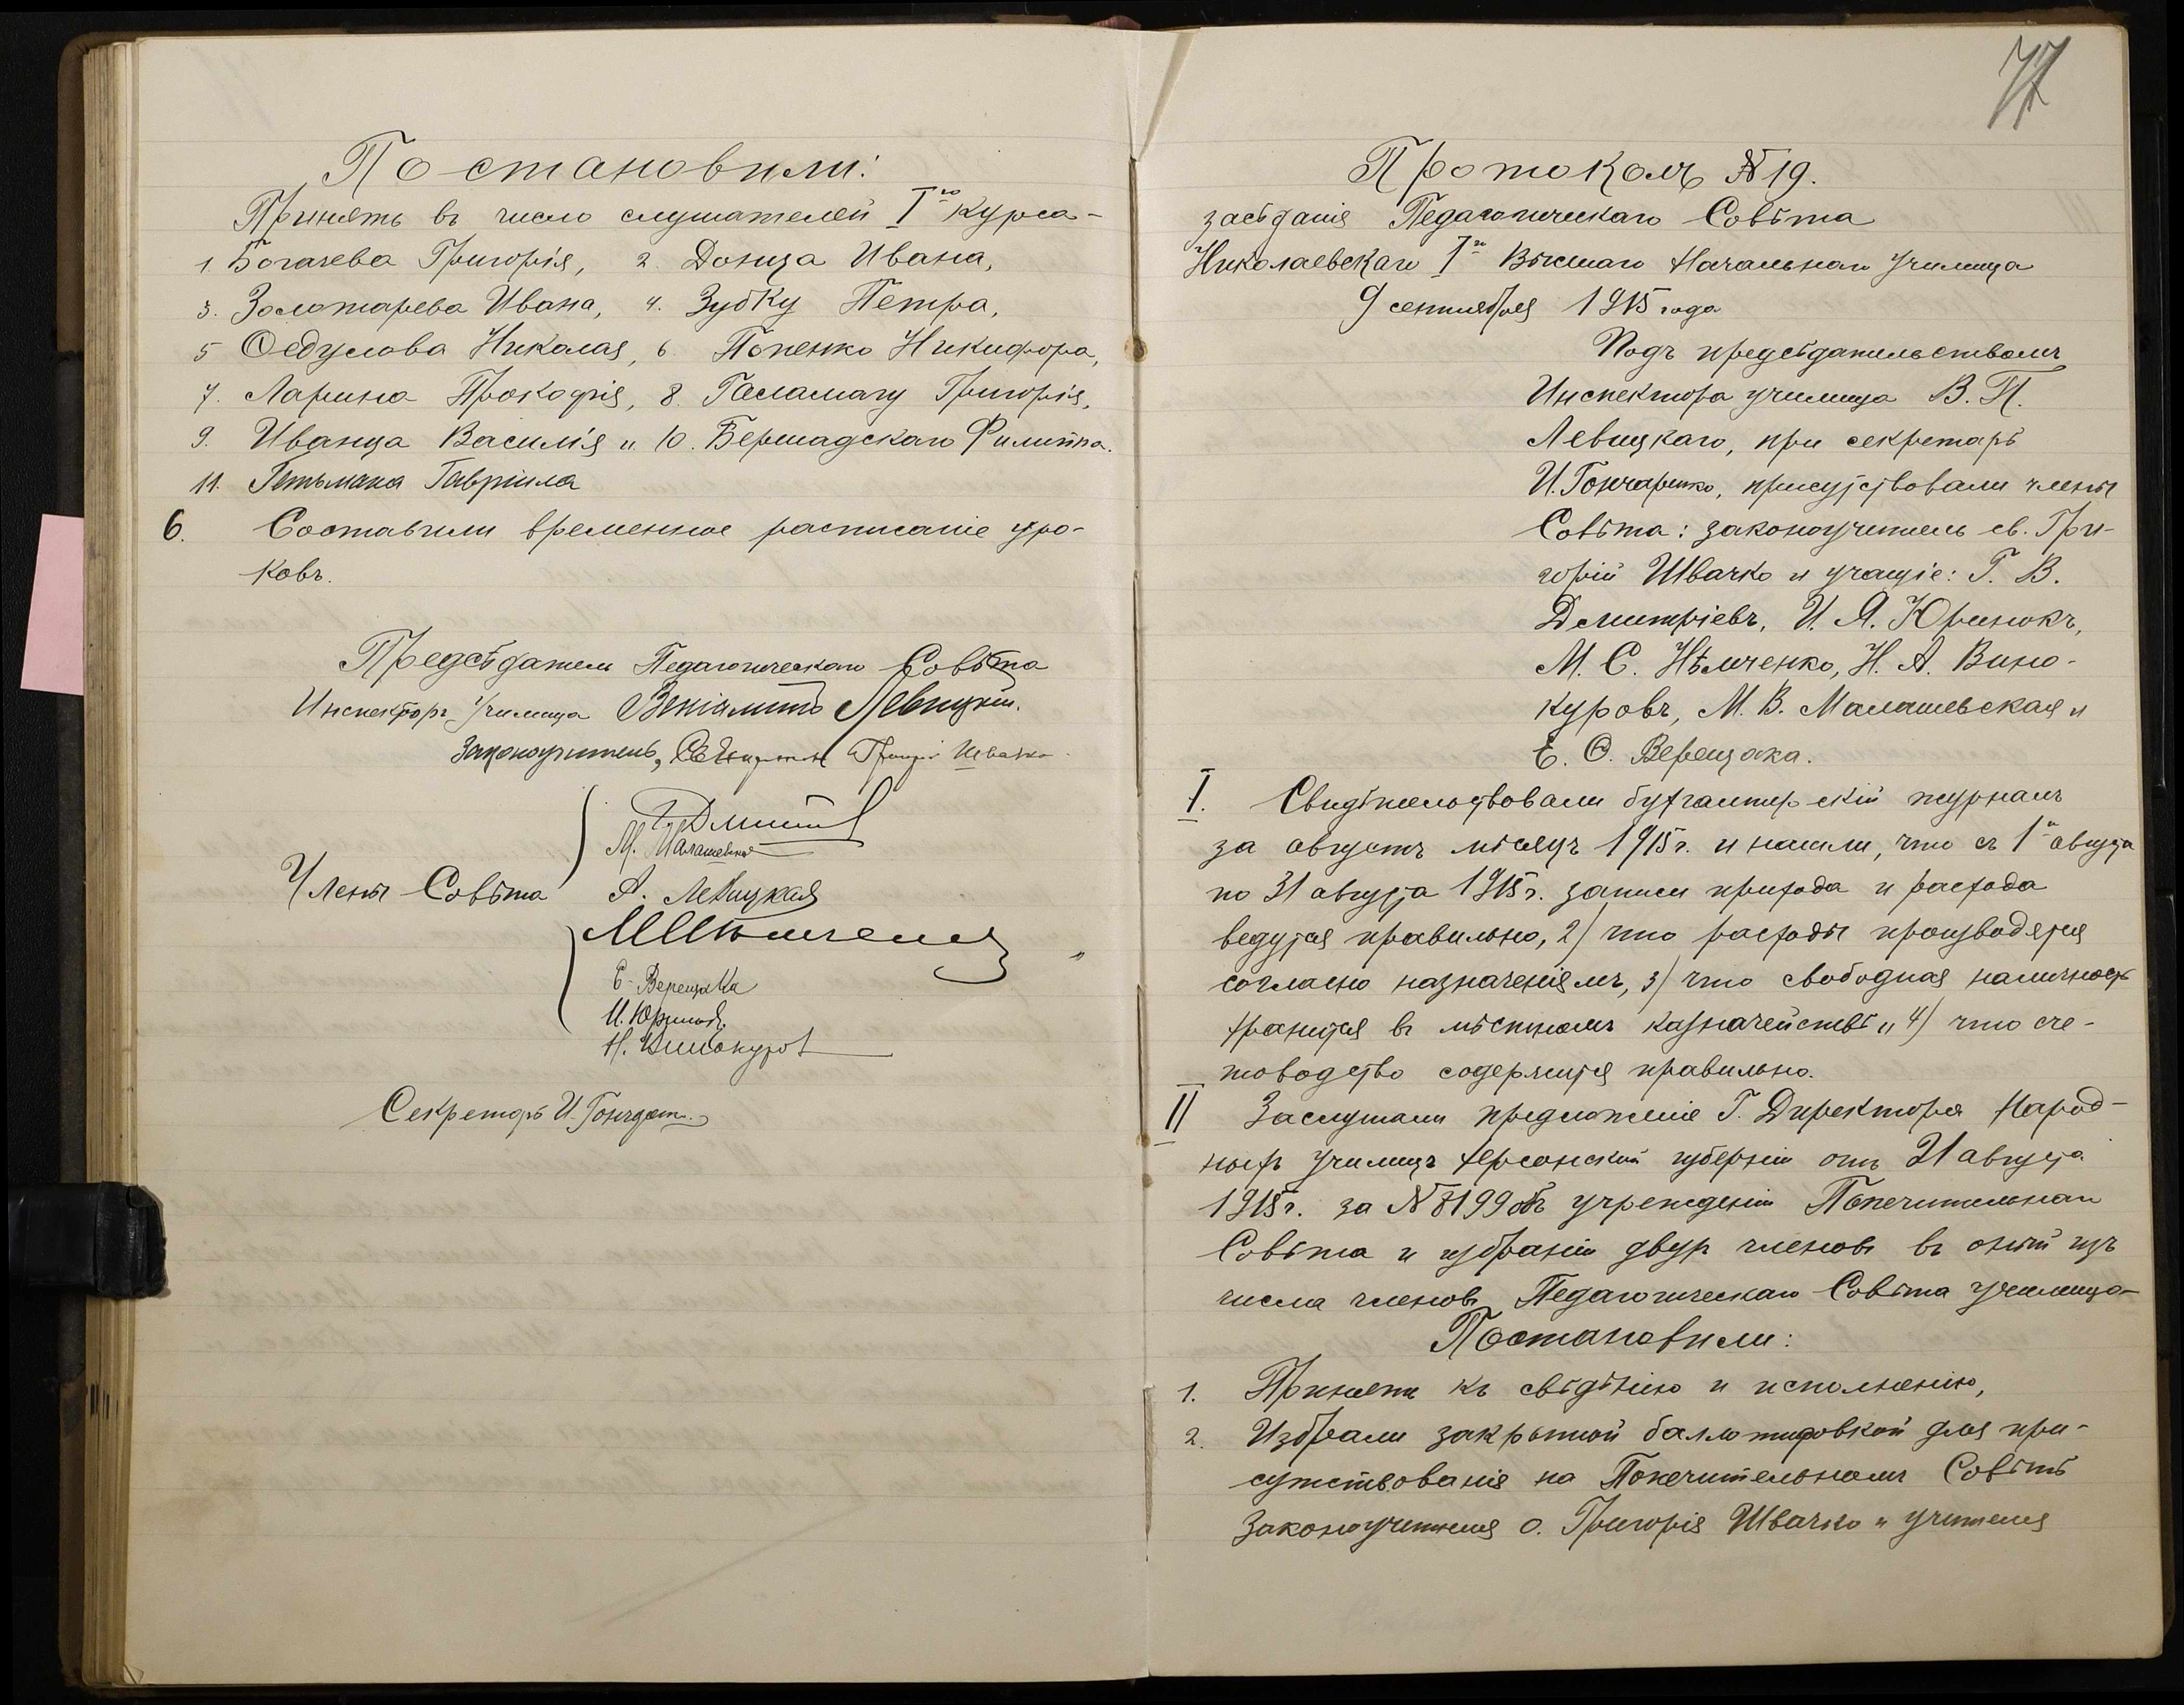 Постановили:
Принять въ число слушателей I-го курса-
1. Богачева Григорія, 2. Донца Ивана,
3. Золотарева Ивана, 4. Зубку Петра,
5 Ѳедулова Николая, 6. Попенко Никифора,
7. Ларина Прокофія, 8. Галамагу Григорія,
9. Иванца Василія и 10. Бершадскаго Филиппа.
11. Гетьмана Гавріила
6. Составили временное расписаніе уро-
ковъ.
Предсѣдатель Педагогическаго Совѣта
Инспекторъ Училища Веніаминъ Левицкій.
Законоучитель, Священникъ Григорій Швачко.
Г. Дмит
М. Малашевская
Члены Совѣта
А. Левицкая
М Нѣмченко
Е. Верещака
И. Юринокъ.
Н. Винокуров
Секретарь И. Гончар
77
Протоколъ №19.
засѣданія Педагогическаго Совѣта
Николаевскаго I-го Высшаго Начальнаго Училища
9 сентября 1915 года
Подъ предсѣдательствомъ
Инспектора училища В. П.
Левицкаго, при секретарѣ
И. Гончаренко, присутствовали члены
Совѣта: законоучитель св. Гри-
горій Швачко и учащіе: Г. В.
Дмитріевъ, И. Я. Юринокъ,
М. С. Нѣмченко, Н. А. Вино-
куровъ, М. В. Малашевская и
Е. Ѳ. Верещака.
I. Свидѣтельствовали бухгалтерскій журналъ
за августъ мѣсяцъ 1915 г. и нашли, что съ 1-го августа
по 31 августа 1915 г. записи прихода и расхода
ведутся правильно, 2) что расходы производятся
согласно назначеніямъ, 3) что свободная наличность
хранится въ мѣстномъ казначействѣ и 4) что сче-
товодство содержится правильно.
II Заслушали предложеніе Г. Директора Народ-
ныхъ училищъ Херсонской губерніи отъ 21 августа
1915 г. за №8199 объ учрежденіи Попечительнаго
Совѣта и избраніи двухъ членовъ въ оный изъ
числа членовъ Педагогическаго Совѣта училища-
Постановили:
1. Принять къ свѣдѣнію и исполненію,
2. Избрали закрытой баллотировкой для при-
сутствованія на Попечительномъ Совѣтѣ
Законоучителя о. Григорія Швачко и учителя